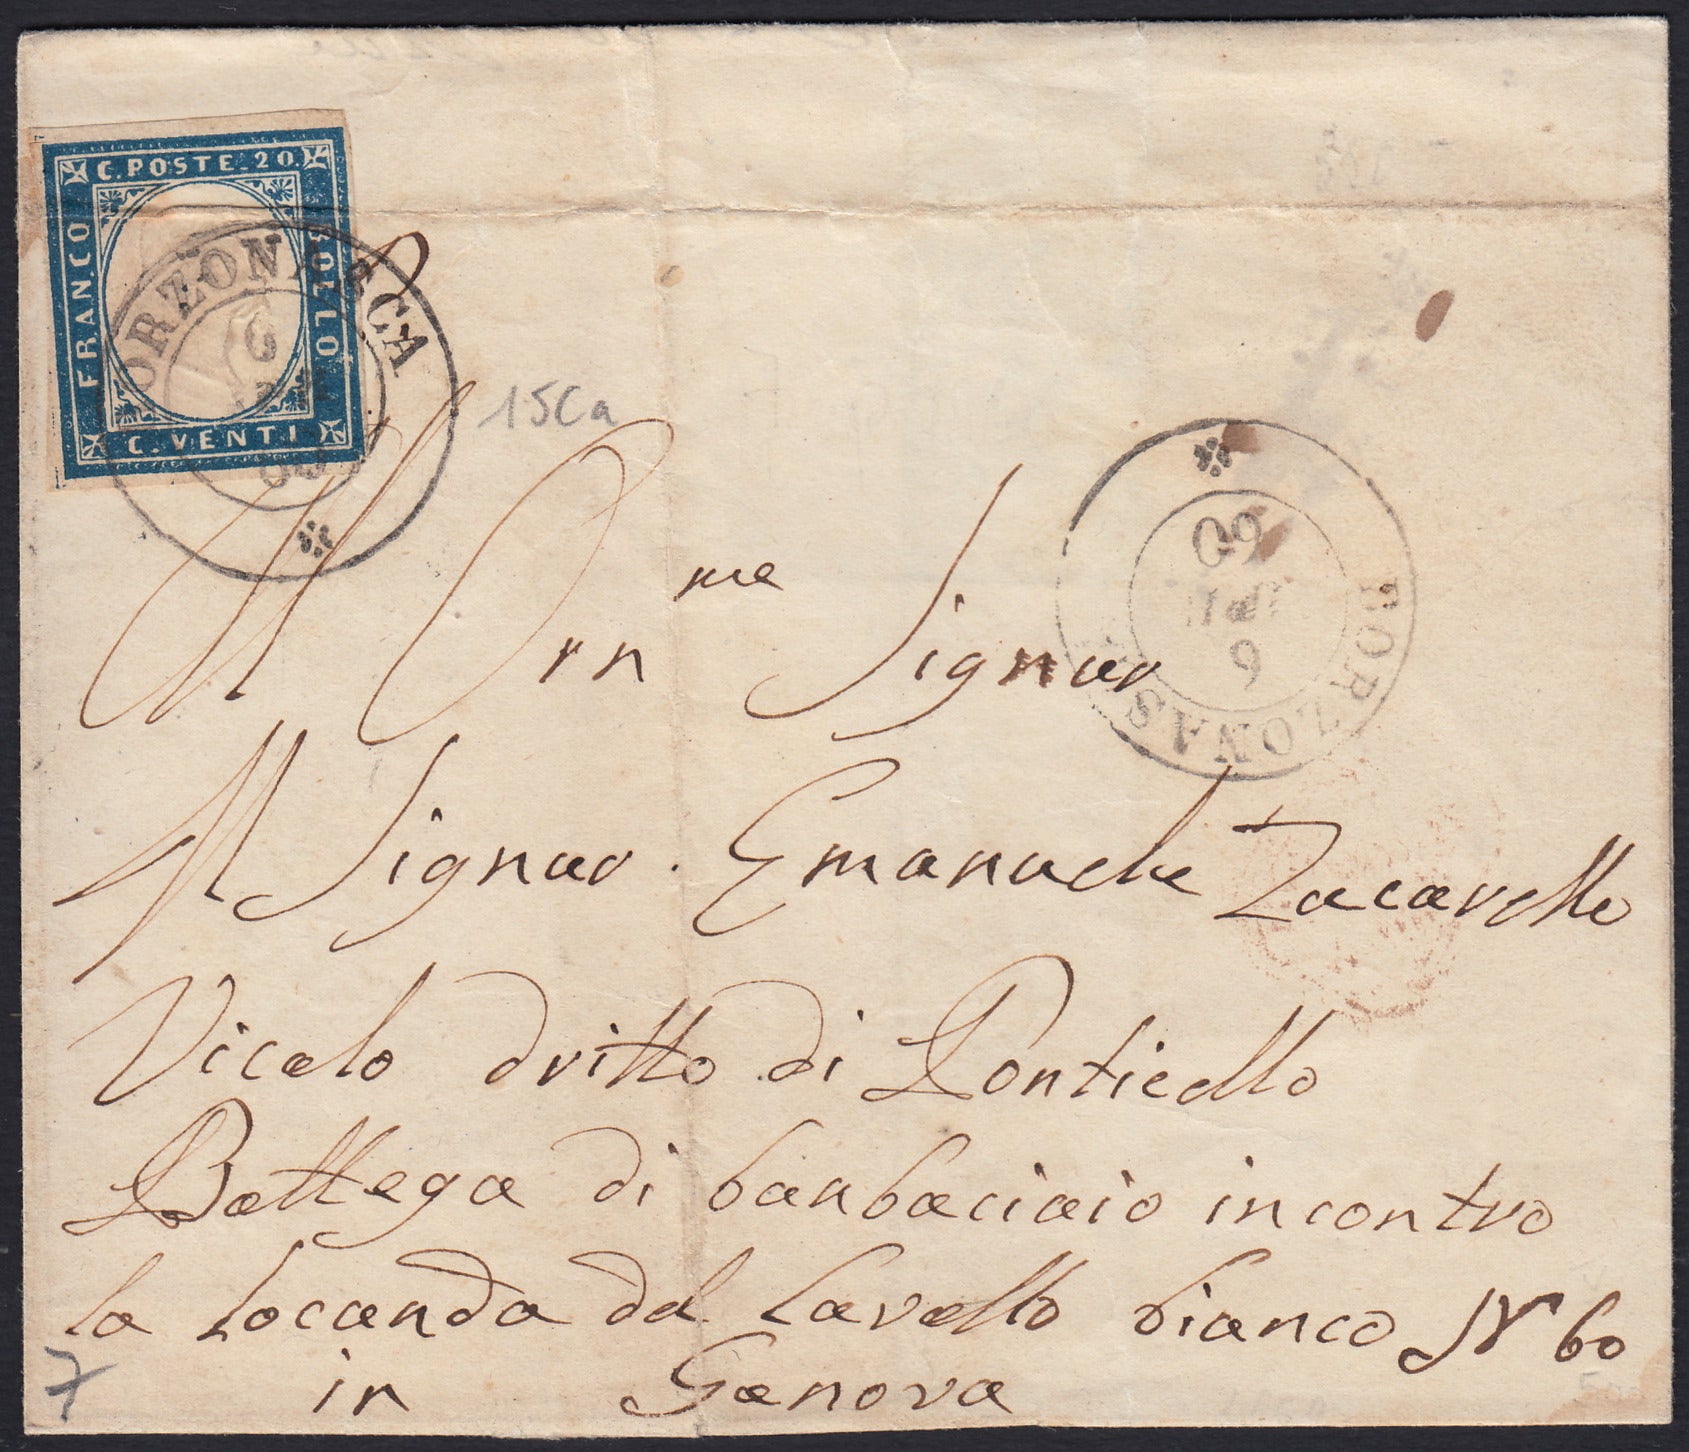 C. POSTE. 20.
FRANCO
BOLLO
C. VENTI
BORZONASCA
6
60
15Ca
BORZONASCA
6
60
All Orn me Signor
Al Signor. Emanuele Zacarello
Vicolo dritto di Ponticello
Bottega di banbaciaio incontro
la Locanda del Cavello bianco N° 60
in Genova
7